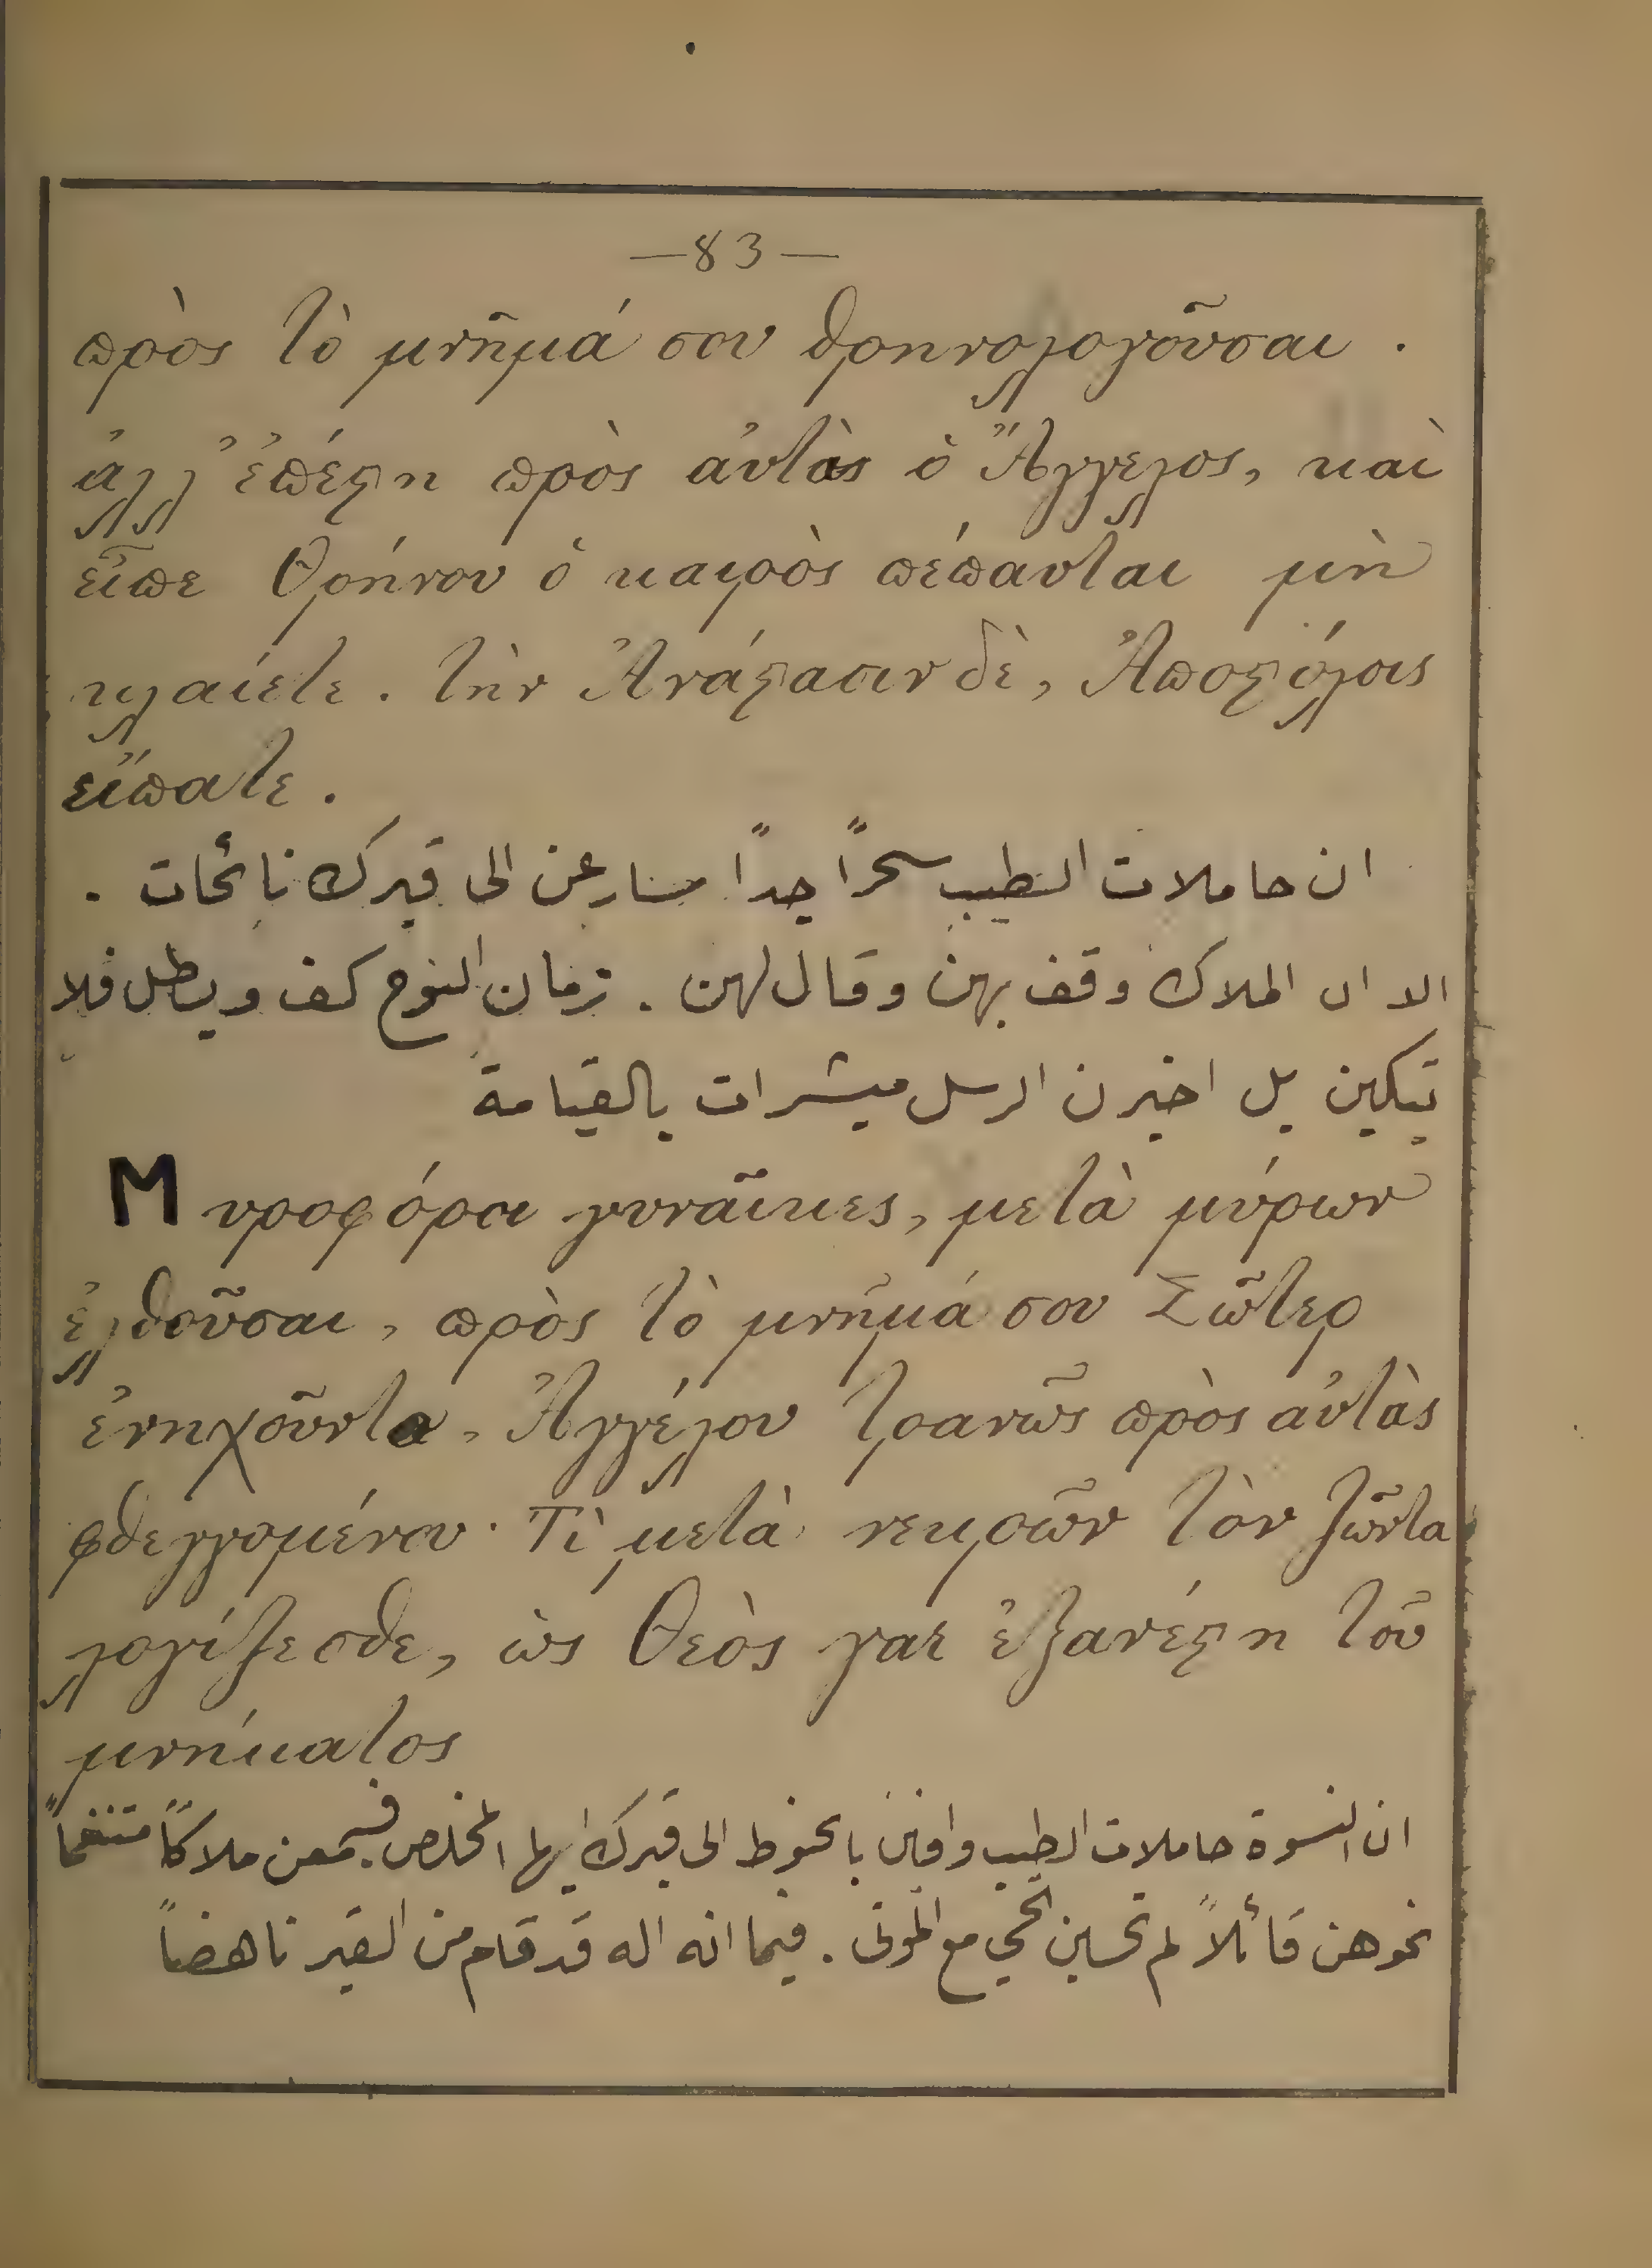 —83—
πρὸς τὸ μνῆμά σου θρηνολογοῦσαι .
ἀλλ' ἐπέστη πρὸς αὐτὰς ὁ Ἄγγελος, καὶ
εἶπε Θρήνου ὁ καιρὸς πέπαυται μὴ
κλαίετε . τὴν Ἀνάστασιν δὲ, Ἀποστόλοις
εἴπατε .
ان حاملات الطيب سحراً جداً سارعن الى قبرك نائحات .
الا ان الملاك وقف بهن وقال لهن . زمان النوح كف وبطل فلا
تبكين بل اخبرن الرسل مبشرات بالقيامة
Μυροφόροι γυναῖκες, μετὰ μύρων
ἐλθοῦσαι, πρὸς τὸ μνῆμά σου Σῶτερ
ἐνηχοῦντο, Ἀγγέλου τρανῶς πρὸς αὐτὰς
φθεγγομένου · Τὶ μετὰ νεκρῶν τὸν ζῶντα
λογίζεσθε, ὡς Θεὸς γαρ ἐξανέστη τοῦ
μνήματος
ان النسوة حاملات الطيب وافين بالحنوط الى قبرك ايها المخلص فسمعن ملاكاً متنغماً
نحوهن قائلاً لم تحسبن الحي مع الموتى . فبما انه اله قد قام من القبر ناهضاً